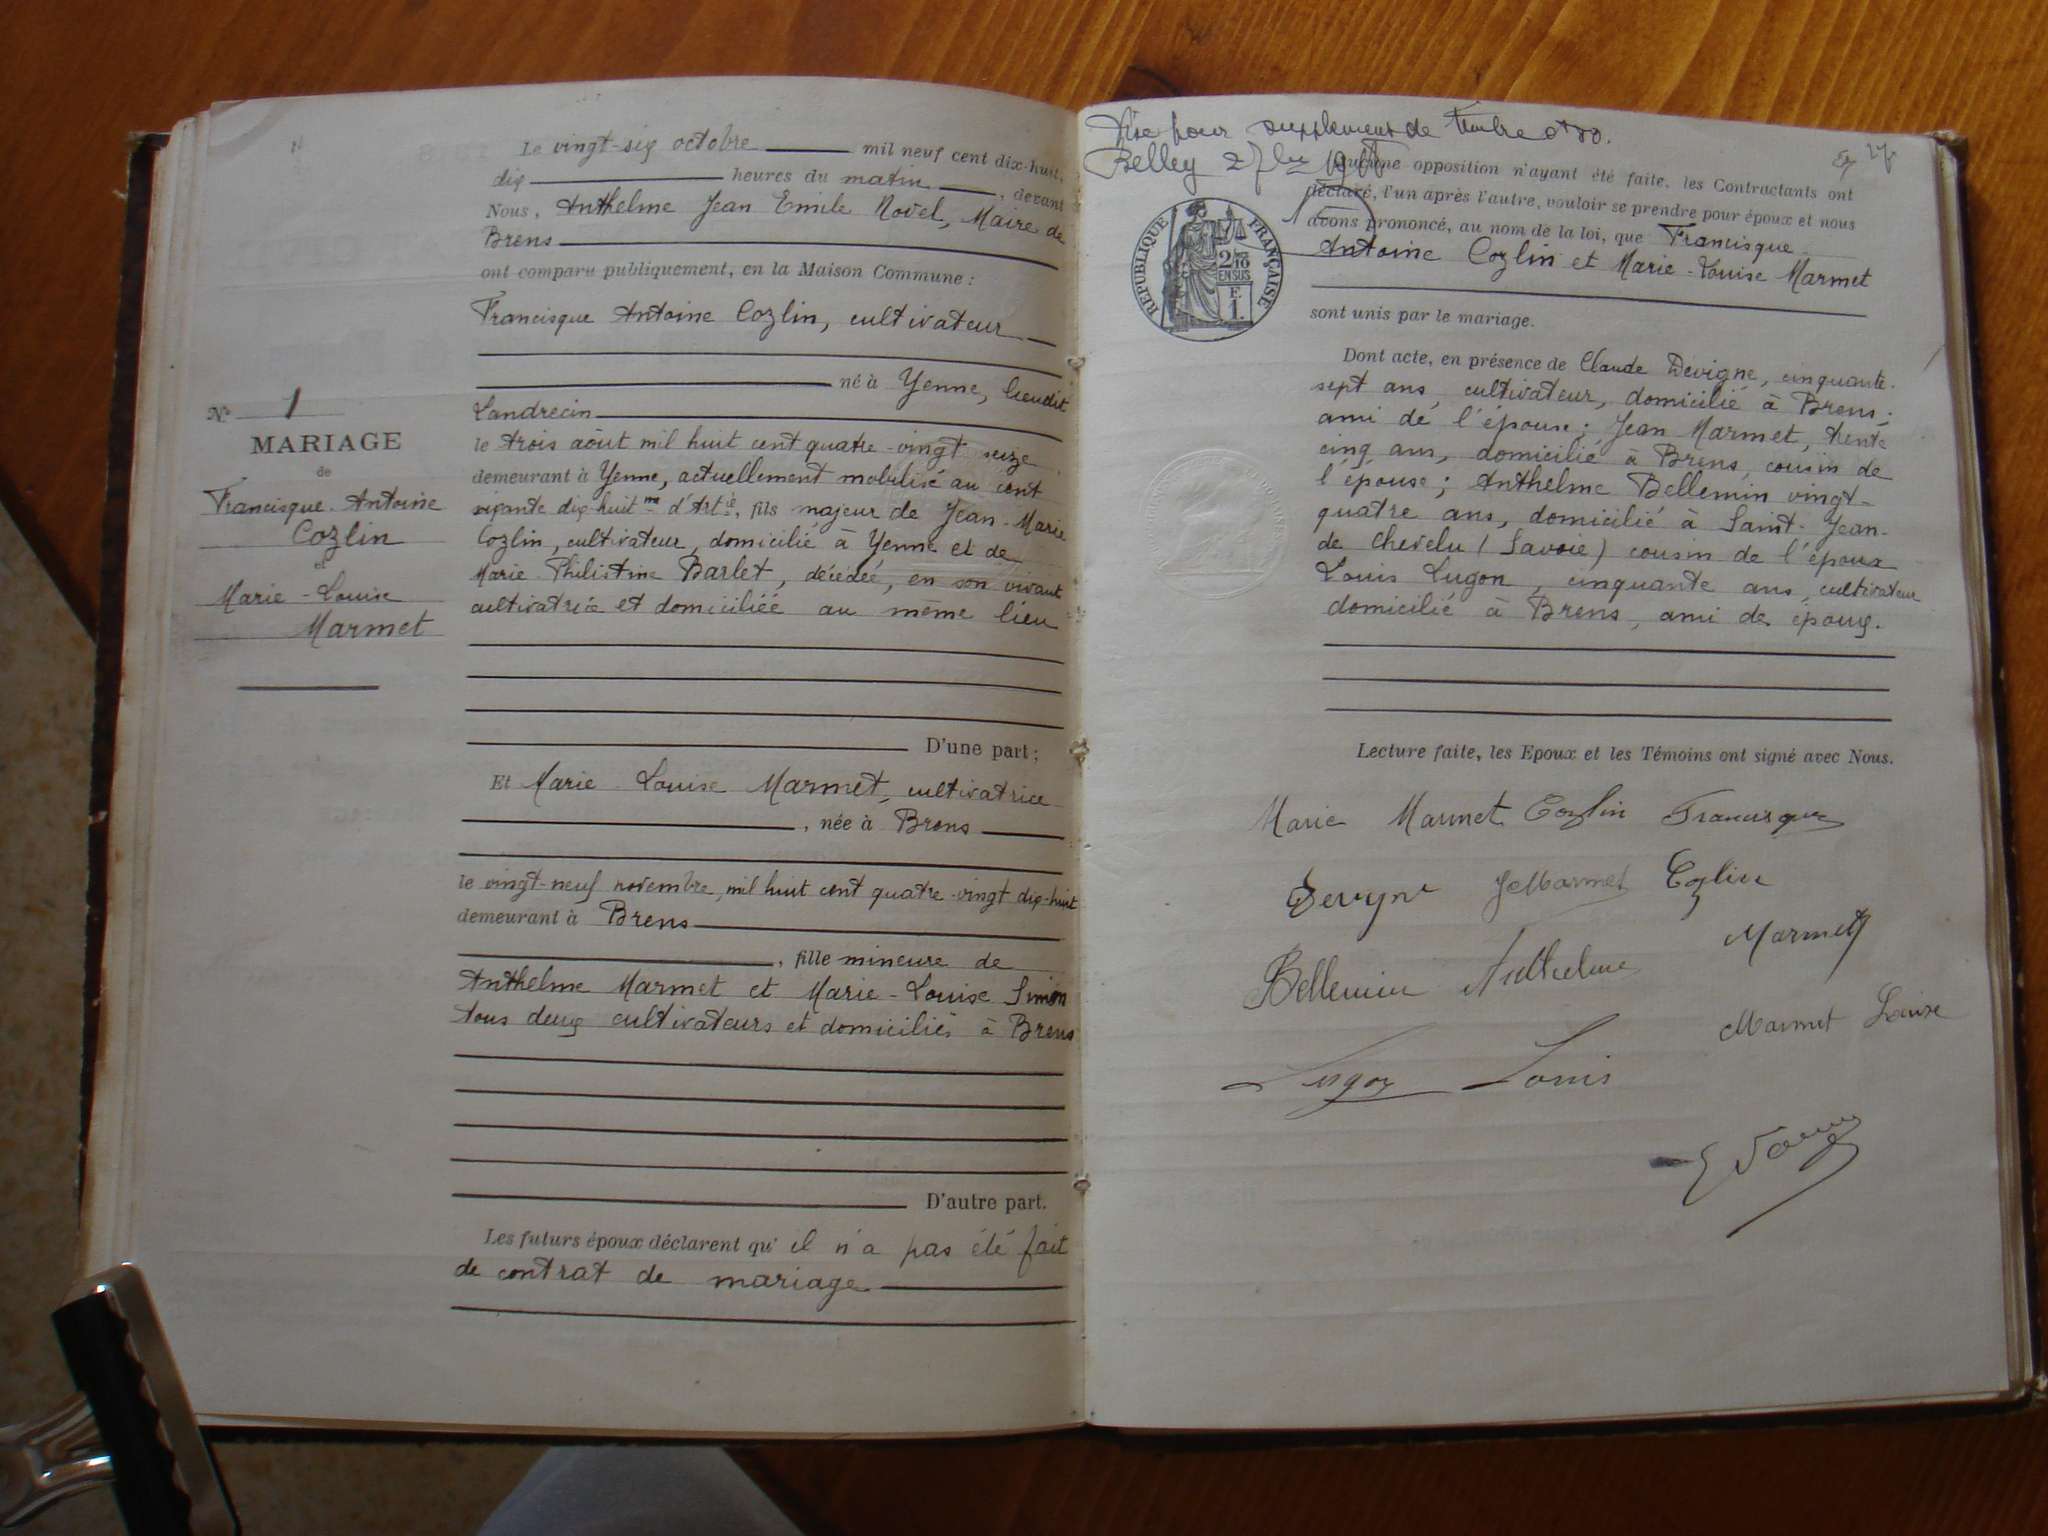 Le vingt-six octobre mil neuf cent dix-huit,
dix heures du matin, devant
Nous, Anthelme Jean Emile Novel, Maire de
Brens
ont comparu publiquement, en la Maison Commune :
Francisque Antoine Cozlin, cultivateur
né à Yenne, lieudit
Landrecin
le trois août mil huit cent quatre-vingt seize
demeurant à Yenne, actuellement mobilisé au cent
soixante dix huit me d'Artie, fils majeur de Jean-Marie
Cozlin, cultivateur, domicilié à Yenne et de
Marie Philistine Barlet, décédée, en son vivant
cultivatrice et domiciliée au même lieu
D'une part ;
Et Marie-Louise Marmet, cultivatrice
, née à Brens
le vingt-neuf novembre, mil huit cent quatre-vingt dix-huit
demeurant à Brens
, fille mineure de
Anthelme Marmet et Marie-Louise Simon
tous deux cultivateurs et domiciliés à Brens
D'autre part.
Les futurs époux déclarent qu'il n'a pas été fait
de contrat de mariage
N° 1
MARIAGE
de
Francisque-Antoine
Cozlin
et
Marie-Louise
Marmet
Visé pour supplément de timbre
Belley
27
Aucune opposition n'ayant été faite, les Contractants ont
déclaré, l'un après l'autre, vouloir se prendre pour époux et nous
avons prononcé, au nom de la loi, que Francisque
Antoine Cozlin et Marie-Louise Marmet
sont unis par le mariage.
RÉPUBLIQUE FRANÇAISE
2/10
EN SUS
F.
1.
Dont acte, en présence de Claude Devigne, cinquante-
sept ans, cultivateur, domicilié à Brens,
ami de l'épouse ; Jean Marmet, trente
cinq ans, domicilié à Brens, cousin de
l'épouse ; Anthelme Bellemin vingt-
quatre ans, domicilié à Saint-Jean-
de Chevelu (Savoie) cousin de l'époux
Louis Lugon, cinquante ans, cultivateur
domicilié à Brens, ami de époux.
Lecture faite, les Epoux et les Témoins ont signé avec Nous.
Marie Marmet Cozlin Francisque
Devigne JMarmet Cozlin
Marmet
Bellemin Anthelme
Marmet Louise
Lugon Louis